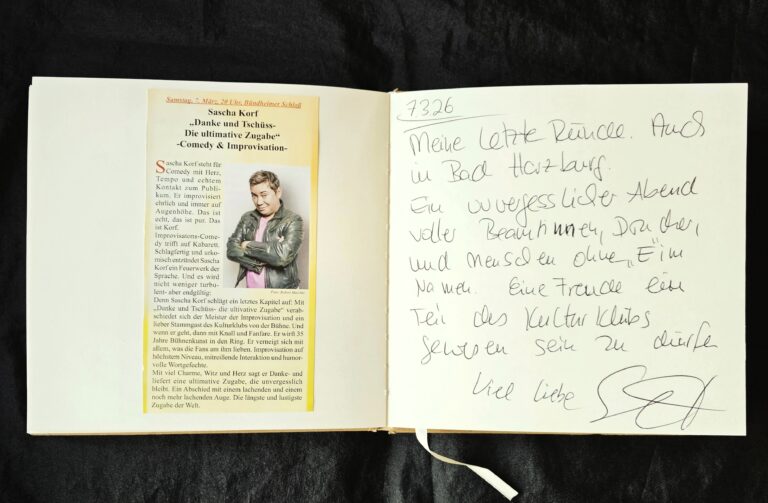 Samstag, 7. März, 20 Uhr, Bündheimer Schloß
Sascha Korf
„Danke und Tschüss-
Die ultimative Zugabe“
-Comedy & Improvisation-
Sascha Korf steht für
Comedy mit Herz,
Tempo und echtem
Kontakt zum Publi-
kum. Er improvisiert
ehrlich und immer auf
Augenhöhe. Das ist
echt, das ist pur. Das
ist Korf.
Improvisatons-Come-
dy trifft auf Kabarett.
Schlagfertig und urko-
misch entzündet Sascha
Korf ein Feuerwerk der
Sprache. Und es wird
nicht weniger turbu-
lent- aber endgültig:
Denn Sascha Korf schlägt ein letztes Kapitel auf: Mit
„Danke und Tschüs- die ultimative Zugabe“ verab-
schiedet sich der Meister der Improvisation und ein
lieber Stammgast des Kulturklubs von der Bühne. Und
wenn er geht, dann mit Knall und Fanfare. Er wirft 35
Jahre Bühnenkunst in den Ring. Er verneigt sich mit
allem, was die Fans an ihm lieben. Improvisation auf
höchstem Niveau, mitreißende Interaktion und humor-
volle Wortgefechte.
Mit viel Charme, Witz und Herz sagt er Danke- und
liefert eine ultimative Zugabe, die unvergesslich
bleibt. Ein Abschied mit einem lachenden und einem
noch mehr lachenden Auge. Die längste und lustigste
Zugabe der Welt.
7.3.26
Meine letzte Runde. Auch
in Bad Harzburg.
Ein unvergesslicher Abend
voller
und Menschen ohne „E“ im
Namen. Eine Freude ein
Teil des Kulturklubs
gewesen sein zu dürfen
Viel Liebe